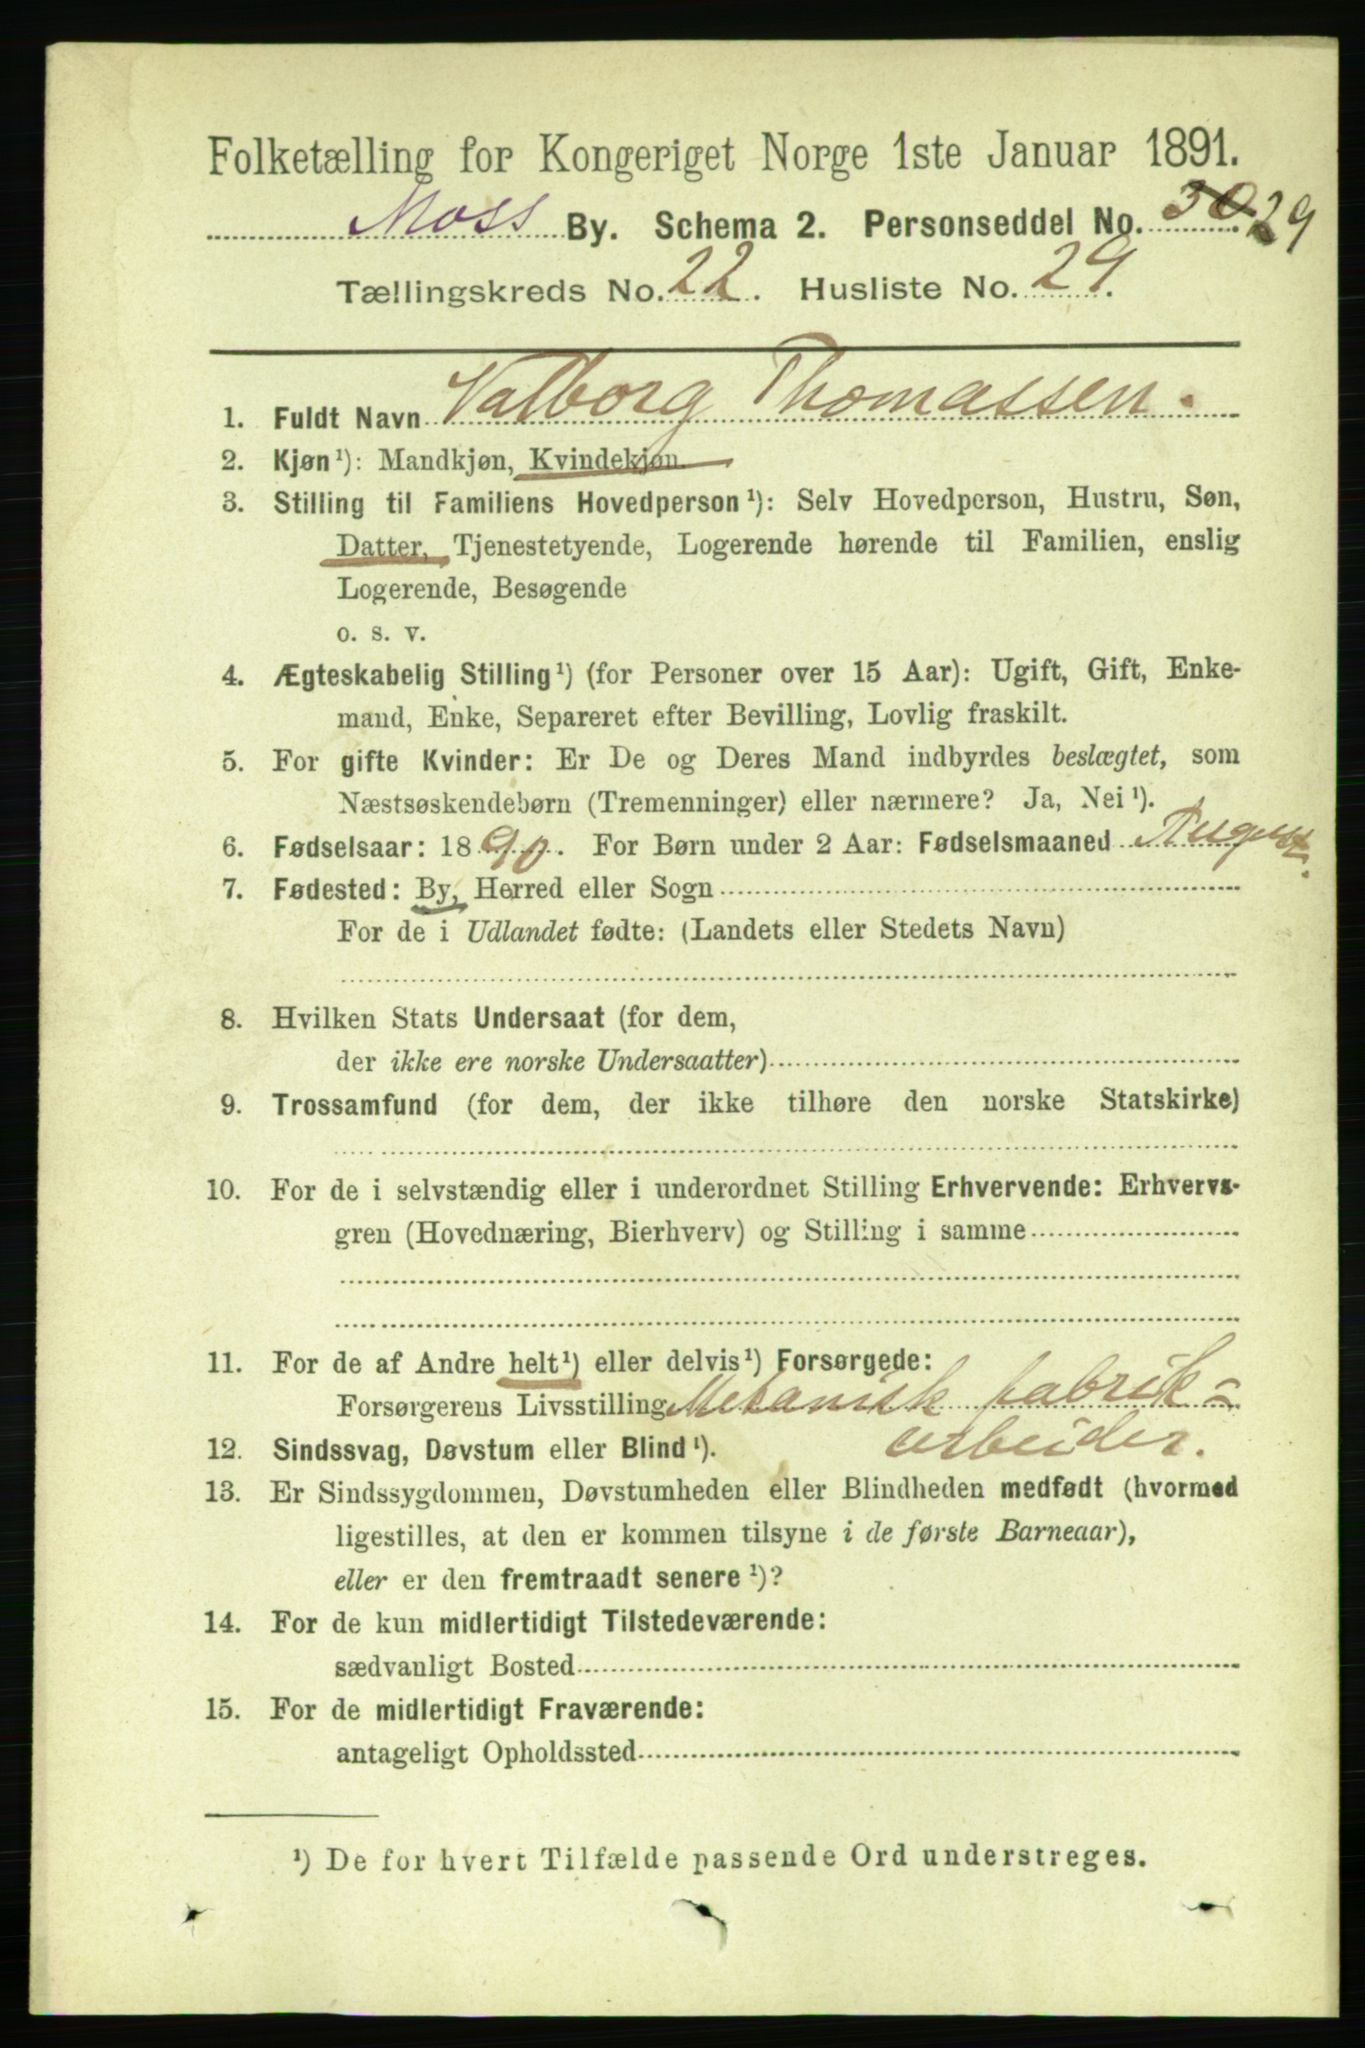 Folketælling for Kongeriget Norge 1ste Januar 1891.
Moss By. Schema 2. Personseddel No. 30 29
Tællingskreds No. 22. Husliste No. 29.
1. Fuldt Navn Valborg Thomassen.
2. Kjøn¹): Mandkjøn, Kvindekjøn.
3. Stilling til Familiens Hovedperson¹): Selv Hovedperson, Hustru, Søn,
Datter, Tjenestetyende, Logerende hørende til Familien, enslig
Logerende, Besøgende
o. s. v.
4. Ægteskabelig Stilling¹) (for Personer over 15 Aar): Ugift, Gift, Enke-
mand, Enke, Separeret efter Bevilling, Lovlig fraskilt.
5. For gifte Kvinder: Er De og Deres Mand indbyrdes beslægtet, som
Næstsøskendebørn (Tremenninger) eller nærmere? Ja, Nei¹).
6. Fødselsaar: 1890. For Børn under 2 Aar: Fødselsmaaned August.
7. Fødested: By, Herred eller Sogn
For de i Udlandet fødte: (Landets eller Stedets Navn)
8. Hvilken Stats Undersaat (for dem,
der ikke ere norske Undersaatter)
9. Trossamfund (for dem, der ikke tilhøre den norske Statskirke)
10. For de i selvstændig eller i underordnet Stilling Erhvervende: Erhvervs-
gren (Hovednæring, Bierhverv) og Stilling i samme
11. For de af Andre helt¹) eller delvis¹) Forsørgede:
Forsørgerens Livsstilling Mekanisk fabrik=
arbeider.
12. Sindssvag, Døvstum eller Blind¹).
13. Er Sindssygdommen, Døvstumheden eller Blindheden medfødt (hvormed
ligestilles, at den er kommen tilsyne i de første Barneaar),
eller er den fremtraadt senere¹)?
14. For de kun midlertidigt Tilstedeværende:
sædvanligt Bosted
15. For de midlertidigt Fraværende:
antageligt Opholdssted
¹) De for hvert Tilfælde passende Ord understreges.